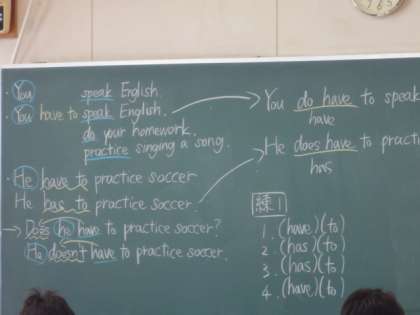 · You speak English.
· You have to speak English.
do your homework.
practice singing a song.
· He have to practice soccer
He has to practice soccer.
→ Does he have to practice soccer?
He doesn't have to practice soccer.
You do have to speak
have
He does have to practi
has
練1
1. (have)(to)
2. (has)(to)
3. (has)(to)
4. (have)(to)